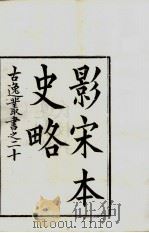 影宋本
史略
古逸叢書之二十